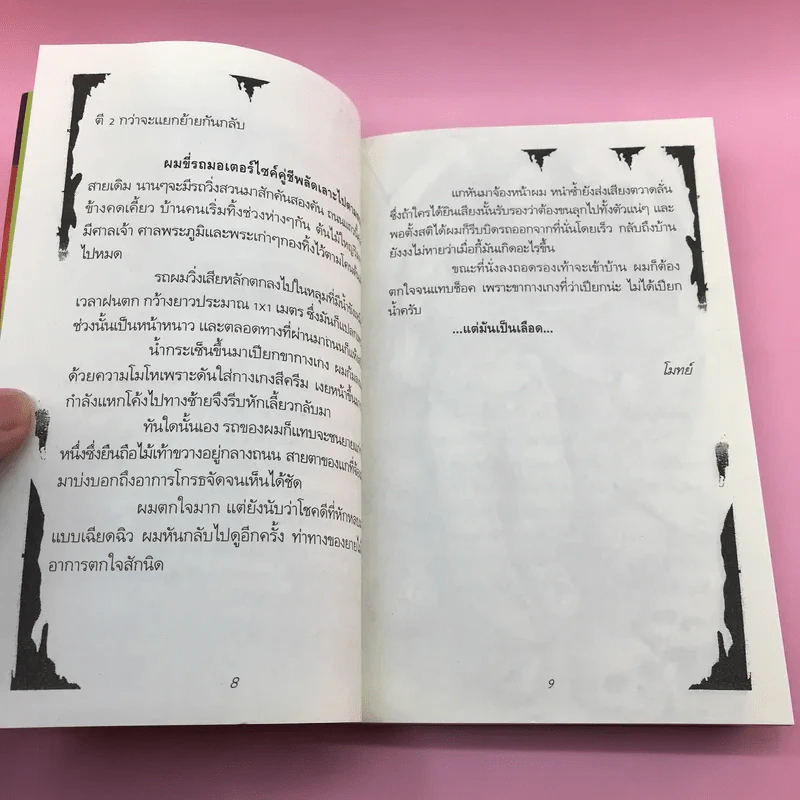 ตี 2 กว่าจะแยกย้ายกันกลับ
ผมขี่รถมอเตอร์ไซค์คู่ชีพลัดเลาะไปตาม
สายเดิม นานๆจะมีรถวิ่งสวนมาสักคันสองคัน
ข้างคดเคี้ยว บ้านคนเริ่มทิ้งช่วงห่างๆกัน ต้นไม้ใหญ่
มีศาลเจ้า ศาลพระภูมิและพระเก่าๆกองทิ้งไว้ตามโคน
ไปหมด
รถผมวิ่งเสียหลักตกลงไปในหลุมที่มีน้ำ
เวลาฝนตก กว้างยาวประมาณ 1X1 เมตร ซึ่งมันก็แปลก
ช่วงนั้นเป็นหน้าหนาว และตลอดทางที่ผ่านมาถนนก็แห้ง
น้ำกระเซ็นขึ้นมาเปียกขากางเกง ผมก้มลง
ด้วยความโมโหเพราะดันใส่กางเกงสีครีม เงยหน้าขึ้น
กำลังแหกโค้งไปทางซ้ายจึงรีบหักเลี้ยวกลับมา
ทันใดนั้นเอง รถของผมก็แทบจะชนยายแก่
หนึ่งซึ่งยืนถือไม้เท้าขวางอยู่กลางถนน สายตาของแกที่จ้อง
มาบ่งบอกถึงอาการโกรธจัดจนเห็นได้ชัด
ผมตกใจมาก แต่ยังนับว่าโชคดีที่หักหลบ
แบบเฉียดฉิว ผมหันกลับไปดูอีกครั้ง ท่าทางของยายไม่
อาการตกใจสักนิด
8
แกหันมาจ้องหน้าผม หนำซ้ำยังส่งเสียงตวาดลั่น
ซึ่งถ้าใครได้ยินเสียงนั้นรับรองว่าต้องขนลุกไปทั้งตัวแน่ๆ และ
พอตั้งสติได้ผมก็รีบบิดรถออกจากที่นั่นโดยเร็ว กลับถึงบ้าน
ยังงงไม่หายว่าเมื่อกี้มันเกิดอะไรขึ้น
ขณะที่นั่งลงถอดรองเท้าจะเข้าบ้าน ผมก็ต้อง
ตกใจจนแทบช็อค เพราะขากางเกงที่ว่าเปียกน่ะ ไม่ได้เปียก
น้ำครับ
...แต่มันเป็นเลือด...
โมทย์
9